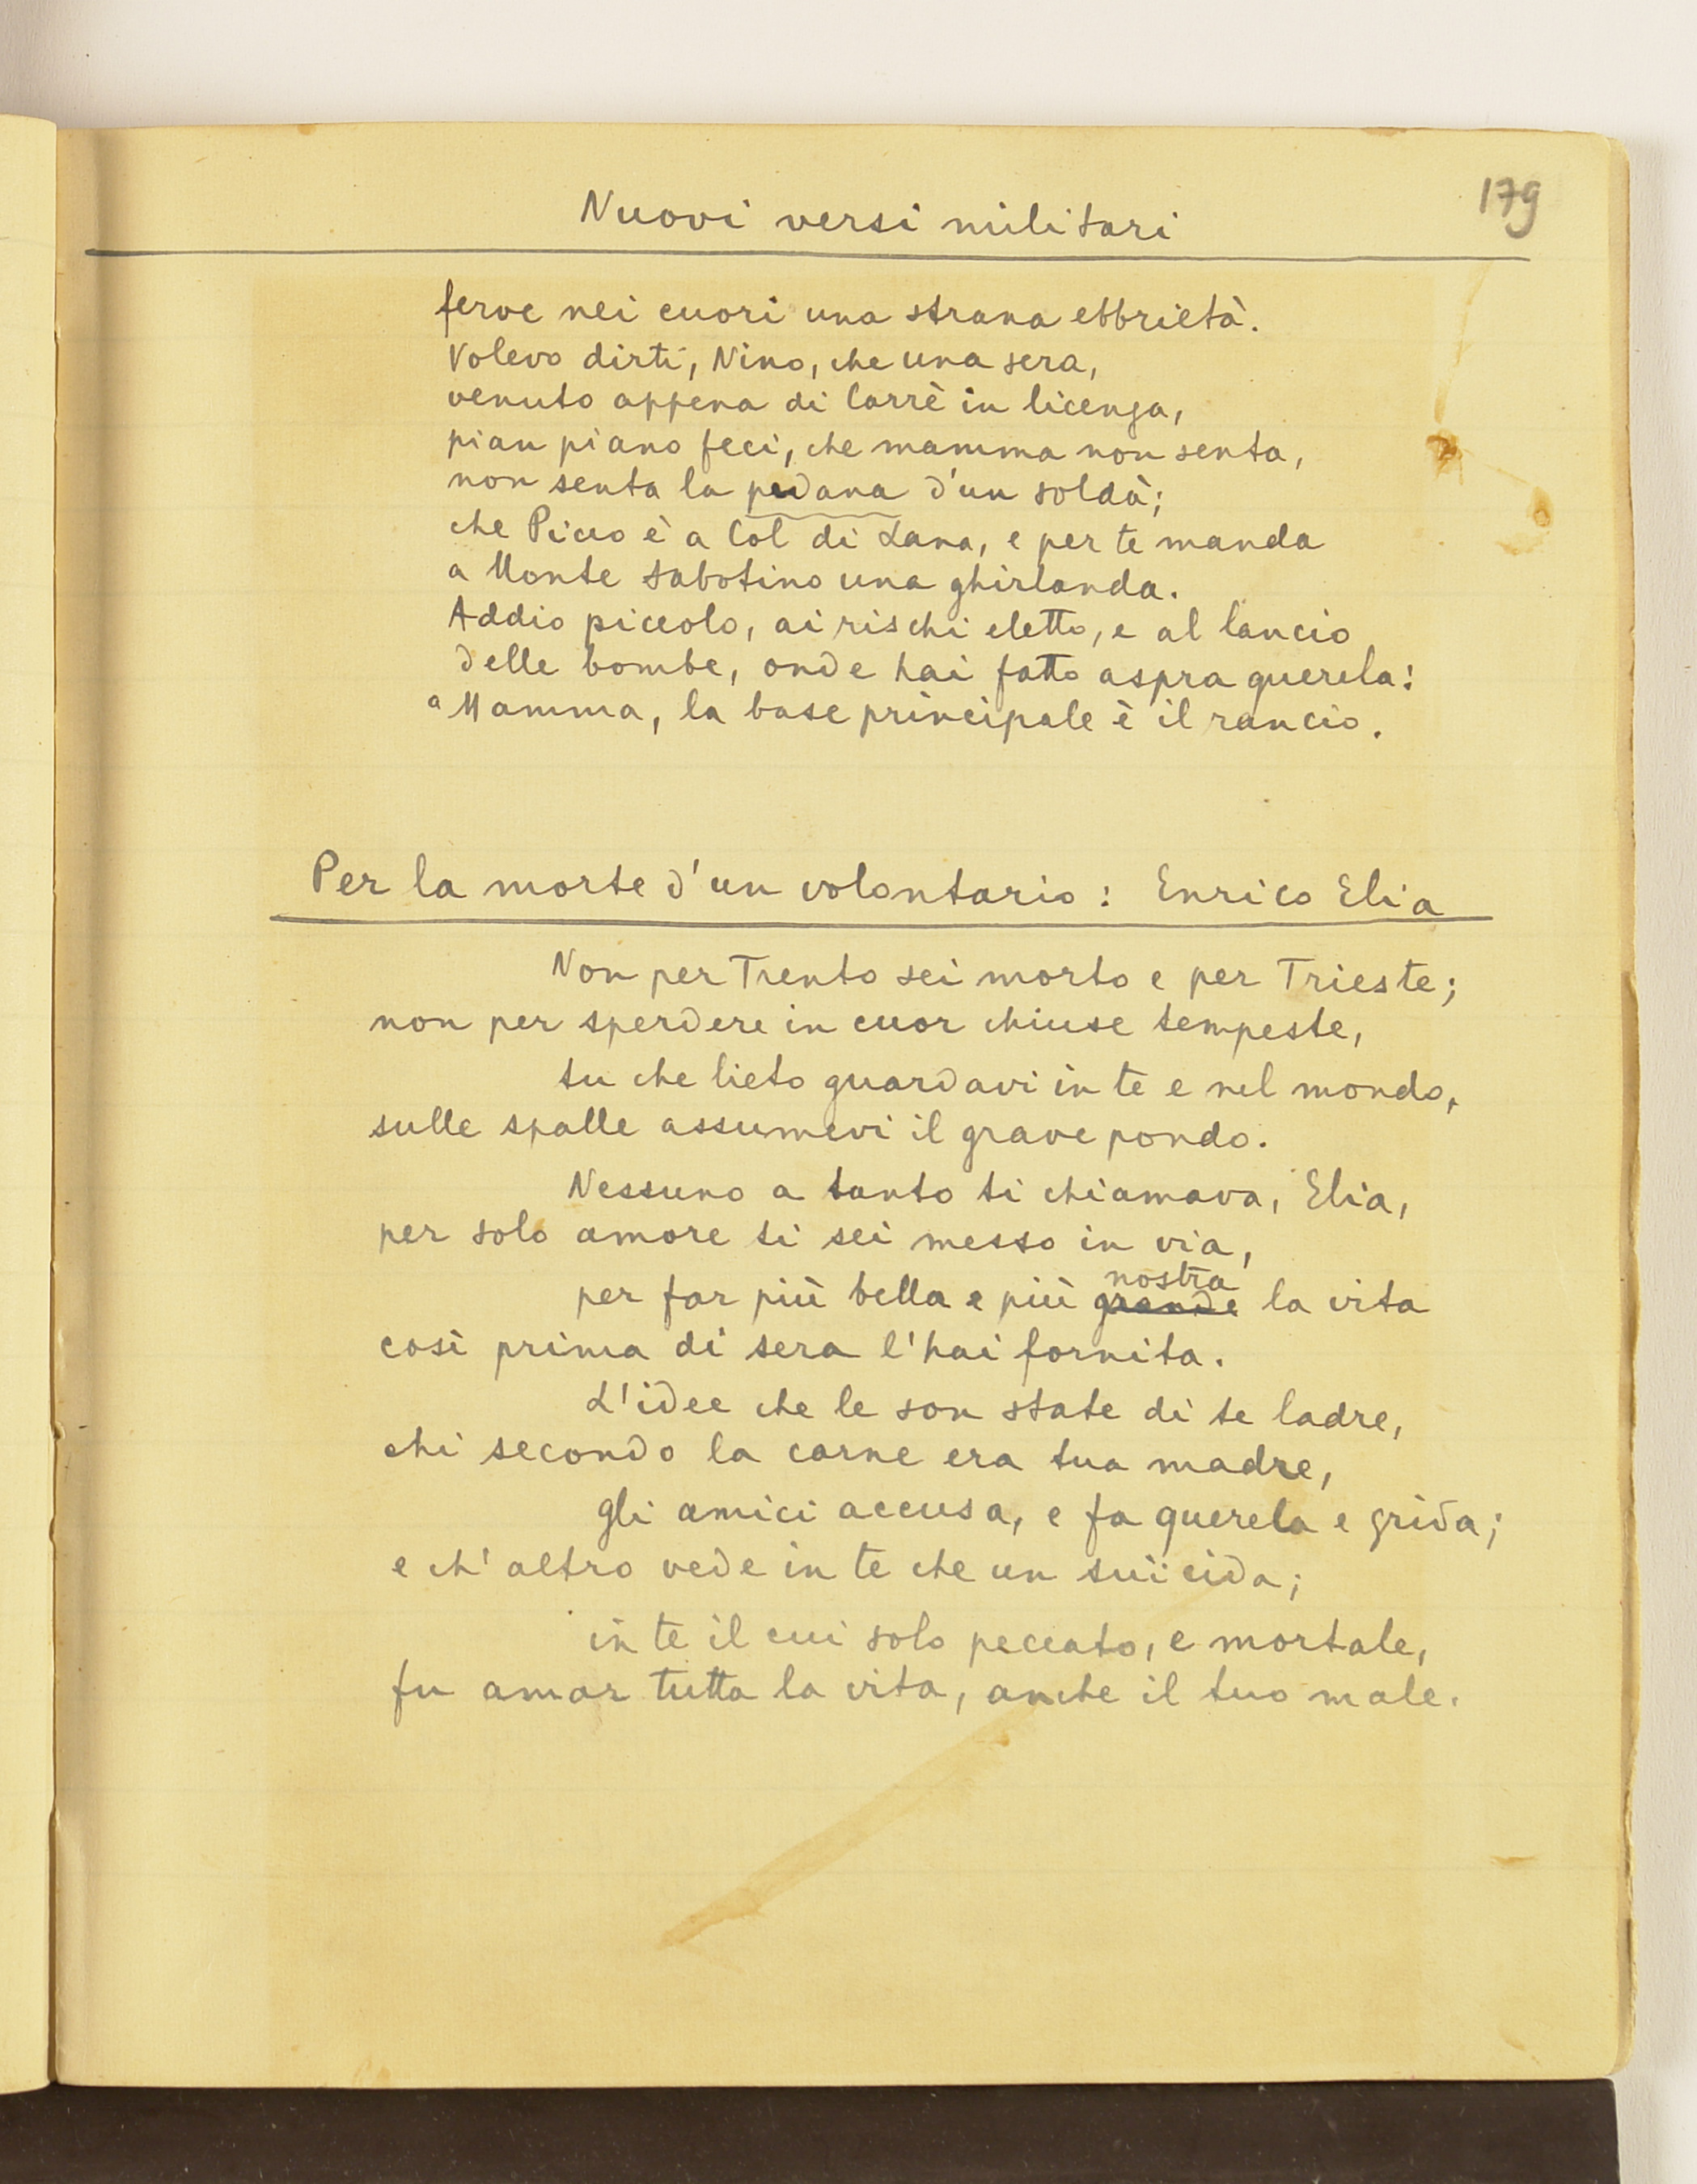 Nuovi versi militari
179
ferve nei cuori una strana ebbrietà.
Volevo dirti, Nino, che una sera,
venuto appena di Carrè in licenza,
pian piano feci, che mamma non senta,
non senta la pedana d'un soldà;
che Picco è a Col di Lana, e per te manda
a Monte Sabotino una ghirlanda.
Addio piccolo, ai rischi eletto, e al lancio
delle bombe, onde hai fatto aspra querela:
a Mamma, la base principale è il rancio.
Per la morte d'un volontario: Enrico Elia
Non per Trento sei morto e per Trieste;
non per sperdere in cuor chiuse tempeste,
tu che lieto guardavi in te e nel mondo,
sulle spalle assumevi il grave pondo.
Nessuno a tanto ti chiamava, Elia,
per solo amore ti sei messo in via,
nostra
per far più bella e più grande la vita
così prima di sera l'hai fornita.
L'idee che le son state di te ladre,
chi secondo la carne era tua madre,
gli amici accusa, e fa querela e grida;
e ch'altro vede in te che un suicida;
in te il cui solo peccato, e mortale,
fu amar tutta la vita, anche il tuo male.